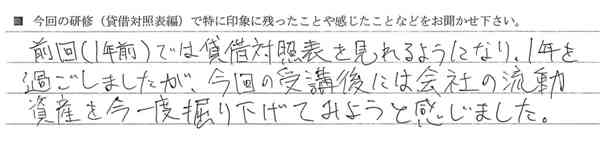 ■ 今回の研修（貸借対照表編）で特に印象に残ったことや感じたことなどをお聞かせ下さい。
前回(1年前)では貸借対照表を見れるようになり、1年を
過ごしましたが、今回の受講後には会社の流動
資産を今一度掘り下げてみようと感じました。